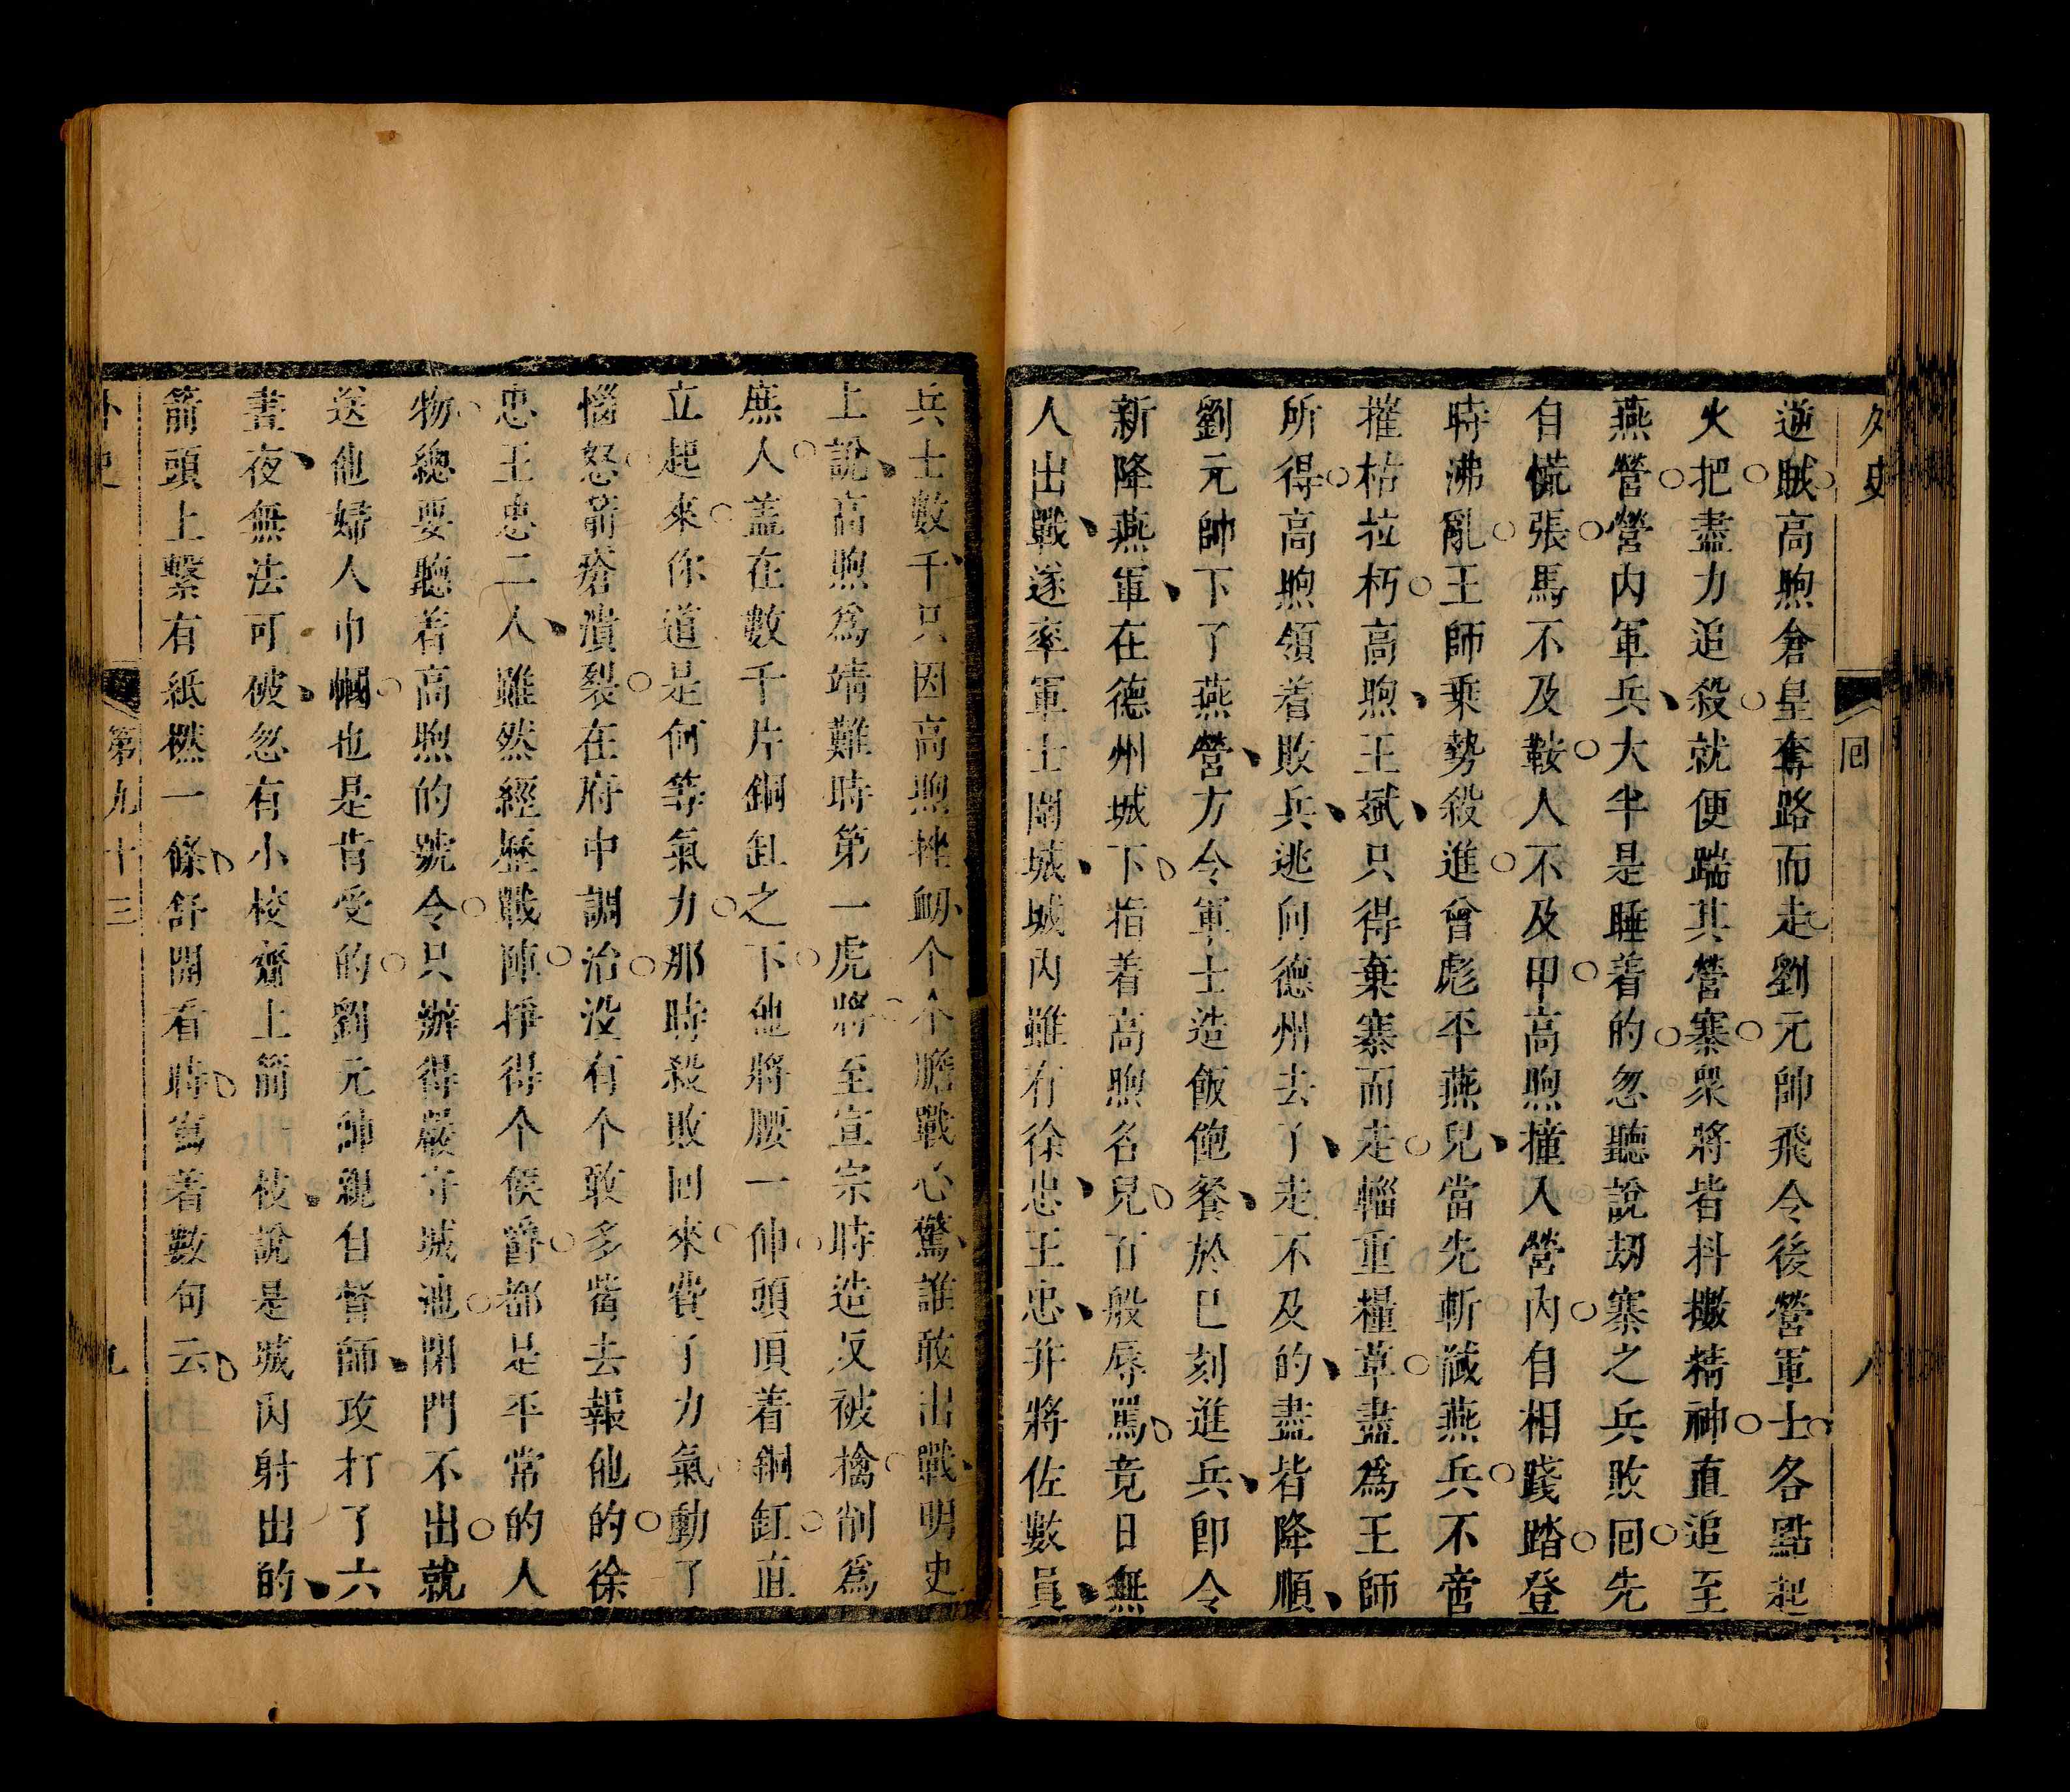 外史
回
八
逆賊高煦倉皇奪路而走劉元帥飛令後營軍士各點起
火把盡力追殺就便踹其營寨眾將者抖擻精神直追至
燕營營內軍兵大半是睡着的忽聽說劫寨之兵敗回先
自慌張馬不及鞍人不及甲高煦撞入營內自相踐踏登
時沸亂王師乗勢殺進曾彪平燕兒當先斬馘燕兵不啻
摧枯拉朽高煦王斌只得棄寨而走輜重糧草盡為王師
所得高煦領着敗兵逃向德州去了走不及的盡皆降順
劉元帥下了燕營方令軍士造飯飽餐於巳刻進兵即令
新降燕軍在德州城下指着高煦名兒百般辱罵竟日無
人出戰遂率軍士圍城城內雖有徐忠王忠并將佐數員
兵士數千只因高煦挫衂个个膽戰心驚誰敢出戰明史
上說高煦為靖難時第一虎將至宣宗時造反被擒削為
庶人盖在數千片銅缸之下他將腰一伸頭頂着銅缸直
立起來你道是何等氣力那時殺敗回來費了力氣動了
惱怒箭瘡潰裂在府中調治没有个敢多嘴去報他的徐
忠王忠二人雖然經歷戰陣掙得个侯爵都是平常的人
物總要聽着高煦的號令只辦得嚴守城池閉門不出就
送他婦人巾幗也是肯受的劉元帥親自督師攻打了六
晝夜無法可破忽有小校齎上箭一枝說是城內射出的
箭頭上繫有紙橪一條舒開看時寫着數句云
外史
第九十三
九